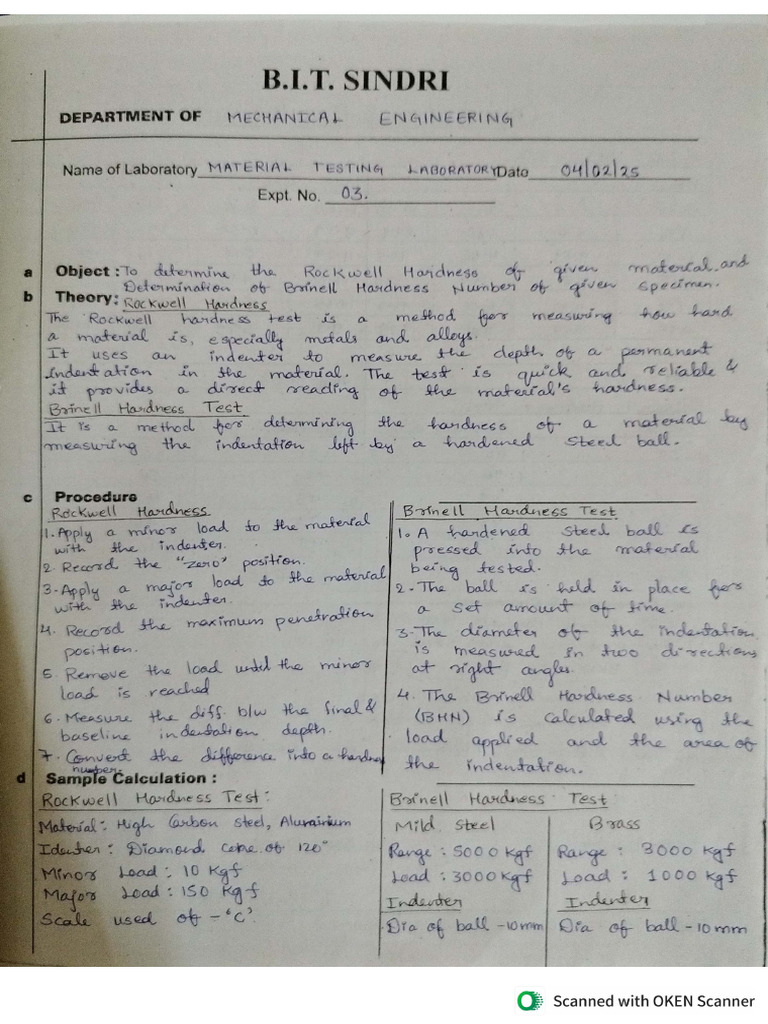 B.I.T. SINDRI
DEPARTMENT OF MECHANICAL ENGINEERING
Name of Laboratory MATERIAL TESTING LABORATORY Date 04/02/25
Expt. No. 03.
a Object : To determine the Rockwell Hardness of given material and
Determination of Brinell Hardness Number of given specimen.
b Theory: Rockwell Hardness
The Rockwell hardness test is a method for measuring how hard
a material is, especially metals and alloys.
It uses an indenter to measure the depth of a permanent
indentation in the material. The test is quick and reliable &
it provides a direct reading of the material's hardness.
Brinell Hardness Test
It is a method for determining the hardness of a material by
measuring the indentation left by a hardened steel ball.
c Procedure
Rockwell Hardness
1. Apply a minor load to the material
with the indenter.
2. Record the "zero" position.
3. Apply a major load to the material
with the indenter.
4. Record the maximum penetration
position.
5. Remove the load until the minor
load is reached
6. Measure the diff. b/w the final &
baseline indentation depth.
7. Convert the difference into a hardness
number.
Brinell Hardness Test
1. A hardened steel ball is
pressed into the material
being tested.
2. The ball is held in place for
a set amount of time.
3. The diameter of the indentation
is measured in two directions
at right angles.
4. The Brinell Hardness Number
(BHN) is calculated using the
load applied and the area of
the indentation.
d Sample Calculation :
Rockwell Hardness Test:
Material: High Carbon steel, Aluminium
Identer: Diamond cone of 120°
Minor Load: 10 Kgf
Major Load: 150 Kgf
Scale used of - 'C'
Brinell Hardness Test:
Mild steel
Range: 5000 Kgf
Load: 3000 Kgf
Indenter
Dia of ball - 10mm
Brass
Range: 3000 Kgf
Load: 1000 Kgf
Indenter
Dia of ball - 10 mm
Scanned with OKEN Scanner